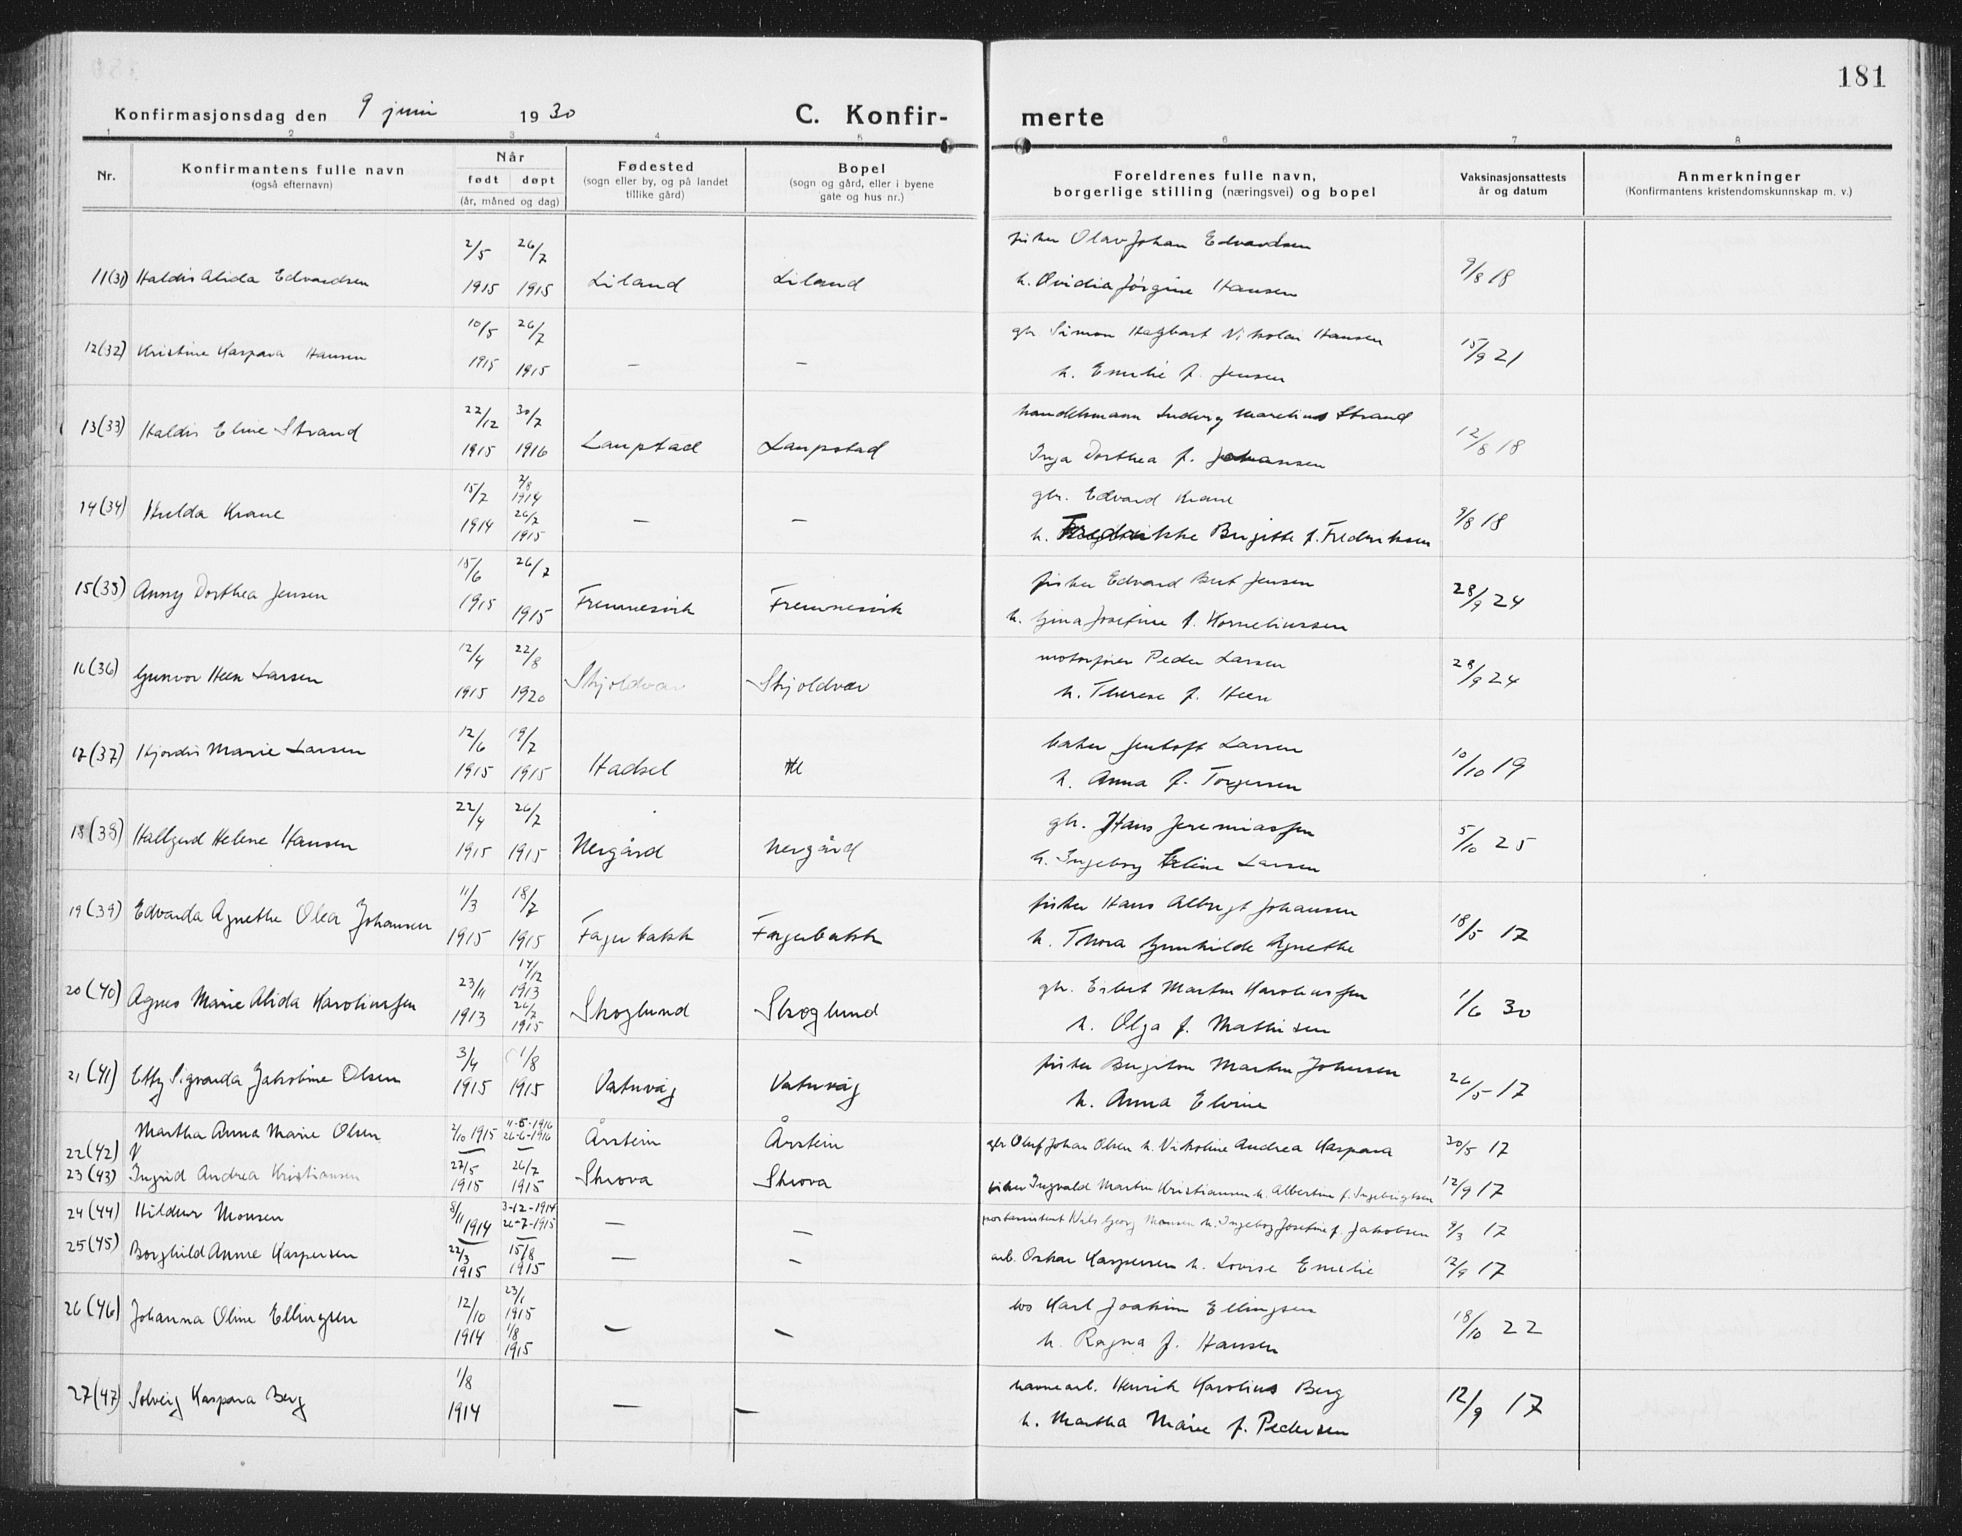 181
Konfirmasjonsdag den 9 juni 1930 C. Konfir- merte
1 2 3 4 5 6 7 8
Nr. Konfirmantens fulle navn (også efternavn) Når født døpt (år, måned og dag) Fødested (sogn eller by, og på landet tillike gård) Bopel (sogn og gård, eller i byene gate og hus nr.) Foreldrenes fulle navn, borgerlige stilling (næringsvei) og bopel Vaksinasjonsattests år og datum Anmerkninger (Konfirmantens kristendomskunnskap m. v.)
2/5 26/7 fisker Olav Johan Edvardsen
11(31) Haldis Alida Edvardsen 1915 1915 Liland Liland h. Ovidia Jørgine Hansen 9/8 18
10/5 26/7 gbr Simon Hagbart Nikolai Hansen
12(32) Kristine Kaspara Hansen 1915 1915 — — h. Emilie f. Jensen 15/9 21
22/12 30/7 handelsmann Ludvig Marelius Strand
13(33) Haldis Eline Strand 1915 1916 Laupstad Laupstad Inga Dorthea f. Johansen 12/8 18
15/7 2/8 1914 gbr. Edvard Krane
14(34) Hulda Krane 1914 26/7 1915 — — h. Fredrikke Birgitte f. Frederiksen 9/8 18
15/6 26/7 fisker Edvard Bert Jensen
15(35) Anny Dorthea Jensen 1915 1915 Fremnesvik Fremnesvik h. Gina Josefine f. Korneliussen 28/9 24
12/4 22/8 motorfører Peder Larsen
16(36) Gunvor Heen Larsen 1915 1920 Skjoldvær Skjoldvær h. Therese f. Heen 28/9 24
12/6 19/7 baker Jentoft Larsen
17(37) Hjørdis Marie Larsen 1915 1915 Hadsel h. Anna f. Torgersen 10/10 19
22/4 26/7 gbr. Hans Jeremiassen
18(38) Hallgerd Helene Hansen 1915 1915 Nergård Nergård h. Ingeborg Larsen 5/10 25
11/3 18/7 fisker Hans Albrigt Johansen
19(39) Edvarda Agnethe Olea Johansen 1915 1915 Fagerbakk Fagerbakk h. Thora Gunhilde Agnethe 18/5 17
23/11 14/12 1913 gbr. Esbert Martin Karoliussen
20(40) Agnes Marie Alida Karoliussen 1913 26/7 1915 Skoglund Skoglund h. Olga f. Mathisen 1/6 30
3/4 1/8 fisker Birgiton Martin Johnsen
21(41) Etty Sigvarda Jakobine Olsen 1915 1915 Vatervåg Vatervåg h. Anna Elvine 26/5 17
22(42) Martha Anna Marie Olsen 2/10 1915 11-5-1916 26-6-1916 Årstein Årstein gbr Oluf Johan Olsen h. Nikoline Andrea Kaspara 30/5 17
23(43) Ingrid Andrea Kristiansen 27/5 1915 26/7 1915 Skrova Skrova fisker Ingvald Martin Kristiansen h. Albertine f. Ingebrigtsen 12/9 17
24(44) Hildur Monsen 8/11 1914 3-12-1914 26-7-1915 — — postassistent Nils Georg Monsen h. Ingeborg Josefine f. Jakobsen 9/3 17
25(45) Borghild Annie Kaspersen 22/3 1915 15/8 1915 — — arb. Oskar Kaspersen h. Lovise Emelie 12/9 17
12/10 23/1 1915 Karl Joakim Ellingsen
26(46) Johanna Oline Ellingsen 1914 1/8 1915 — — h. Ragna f. Hansen 18/10 22
1/8 havnearb. Henrik Karolius Berg
27(47) Solveig Kaspara Berg 1914 — — h. Martha Marie f. Pedersen 12/9 17